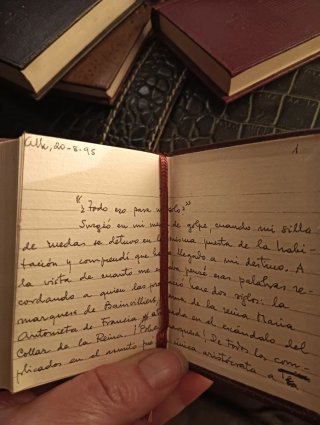 20-8-95
1
"¿Todo eso para mí solo?"
Surgió en mi mente de golpe, cuando mi silla
de ruedas se detuvo en la misma puerta de la habi-
tación y comprendí que había llegado a mi destino. A
la vista de cuanto me rodeaba pensé esas palabras re-
cordando a quien las pronunció hace dos siglos: la
marquesa de Bainvilliers, dama de la reina María
Antonieta de Francia, en el escándalo del
Collar de la Reina. ¡Pobre marquesa! De todos los com-
plicados en el asunto fue la única aristócrata a la